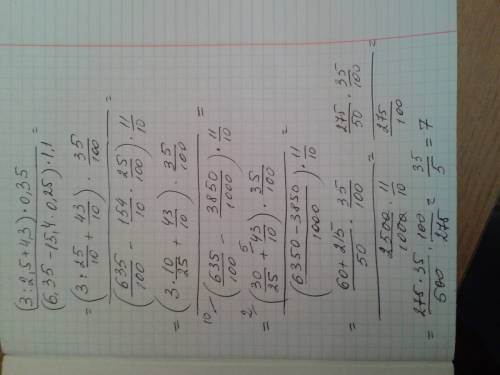 (3:2,5+4,3)·0,35 / (6,35-15,4·0,25)·1,1 =
= (3 : 25/10 + 43/10) · 35/100 / (635/100 - 154/10 · 25/100) · 11/10 =
= (3 · 10/25 + 43/10) · 35/100 / (635/100 - 3850/1000) · 11/10 =
= (30/25 + 43/10) · 35/100 / (6350-3850/1000) · 11/10 =
= 60+215/50 · 35/100 / 2500/1000 · 11/10 = 275/50 · 35/100 / 275/100 =
= 275·35·100/500·275 = 35/5 = 7